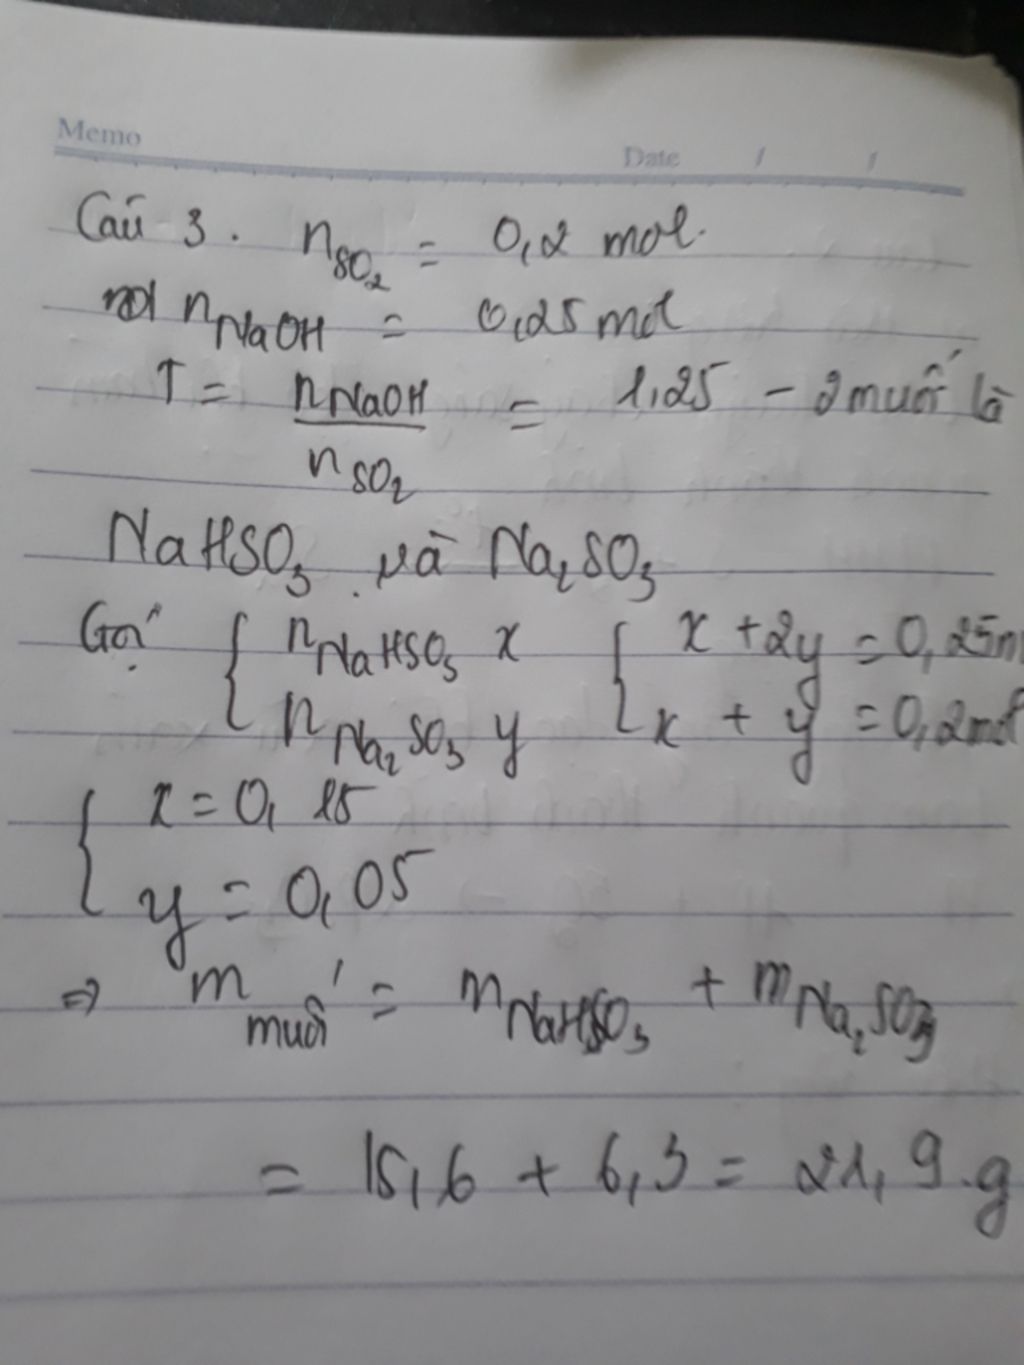 Memo
Date / /
Câu 3. nSO₂ = 0,2 mol.
nNaOH = 0,25 mol
T = nNaOH / nSO₂ = 1,25 - 2 muối là
NaHSO₃ và Na₂SO₃
Gọi { nNaHSO₃ x { x + 2y = 0,25m
nNa₂SO₃ y x + y = 0,2mol
{ x = 0,15
y = 0,05
⇒ m muối = mNaHSO₃ + mNa₂SO₃
= 15,6 + 6,3 = 21,9.g